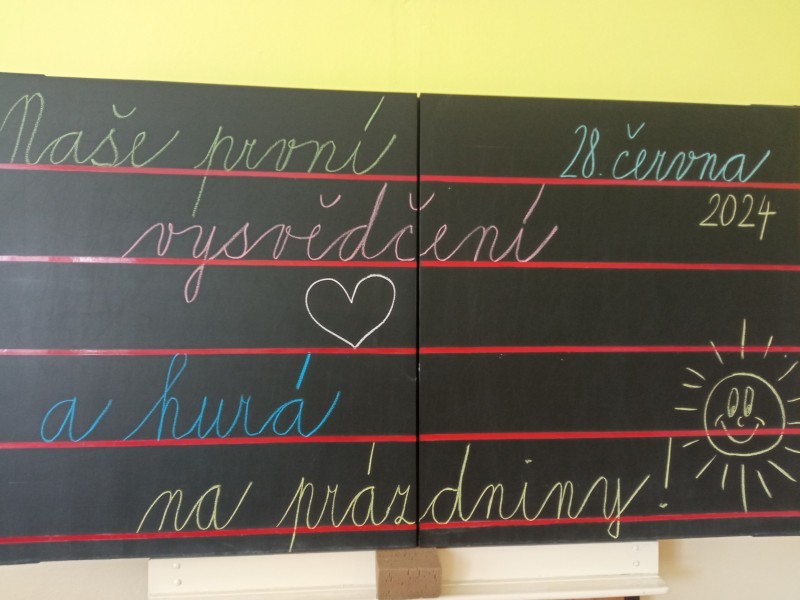 Naše první
28. června
2024
vysvědčení
a hurá
na prázdniny!